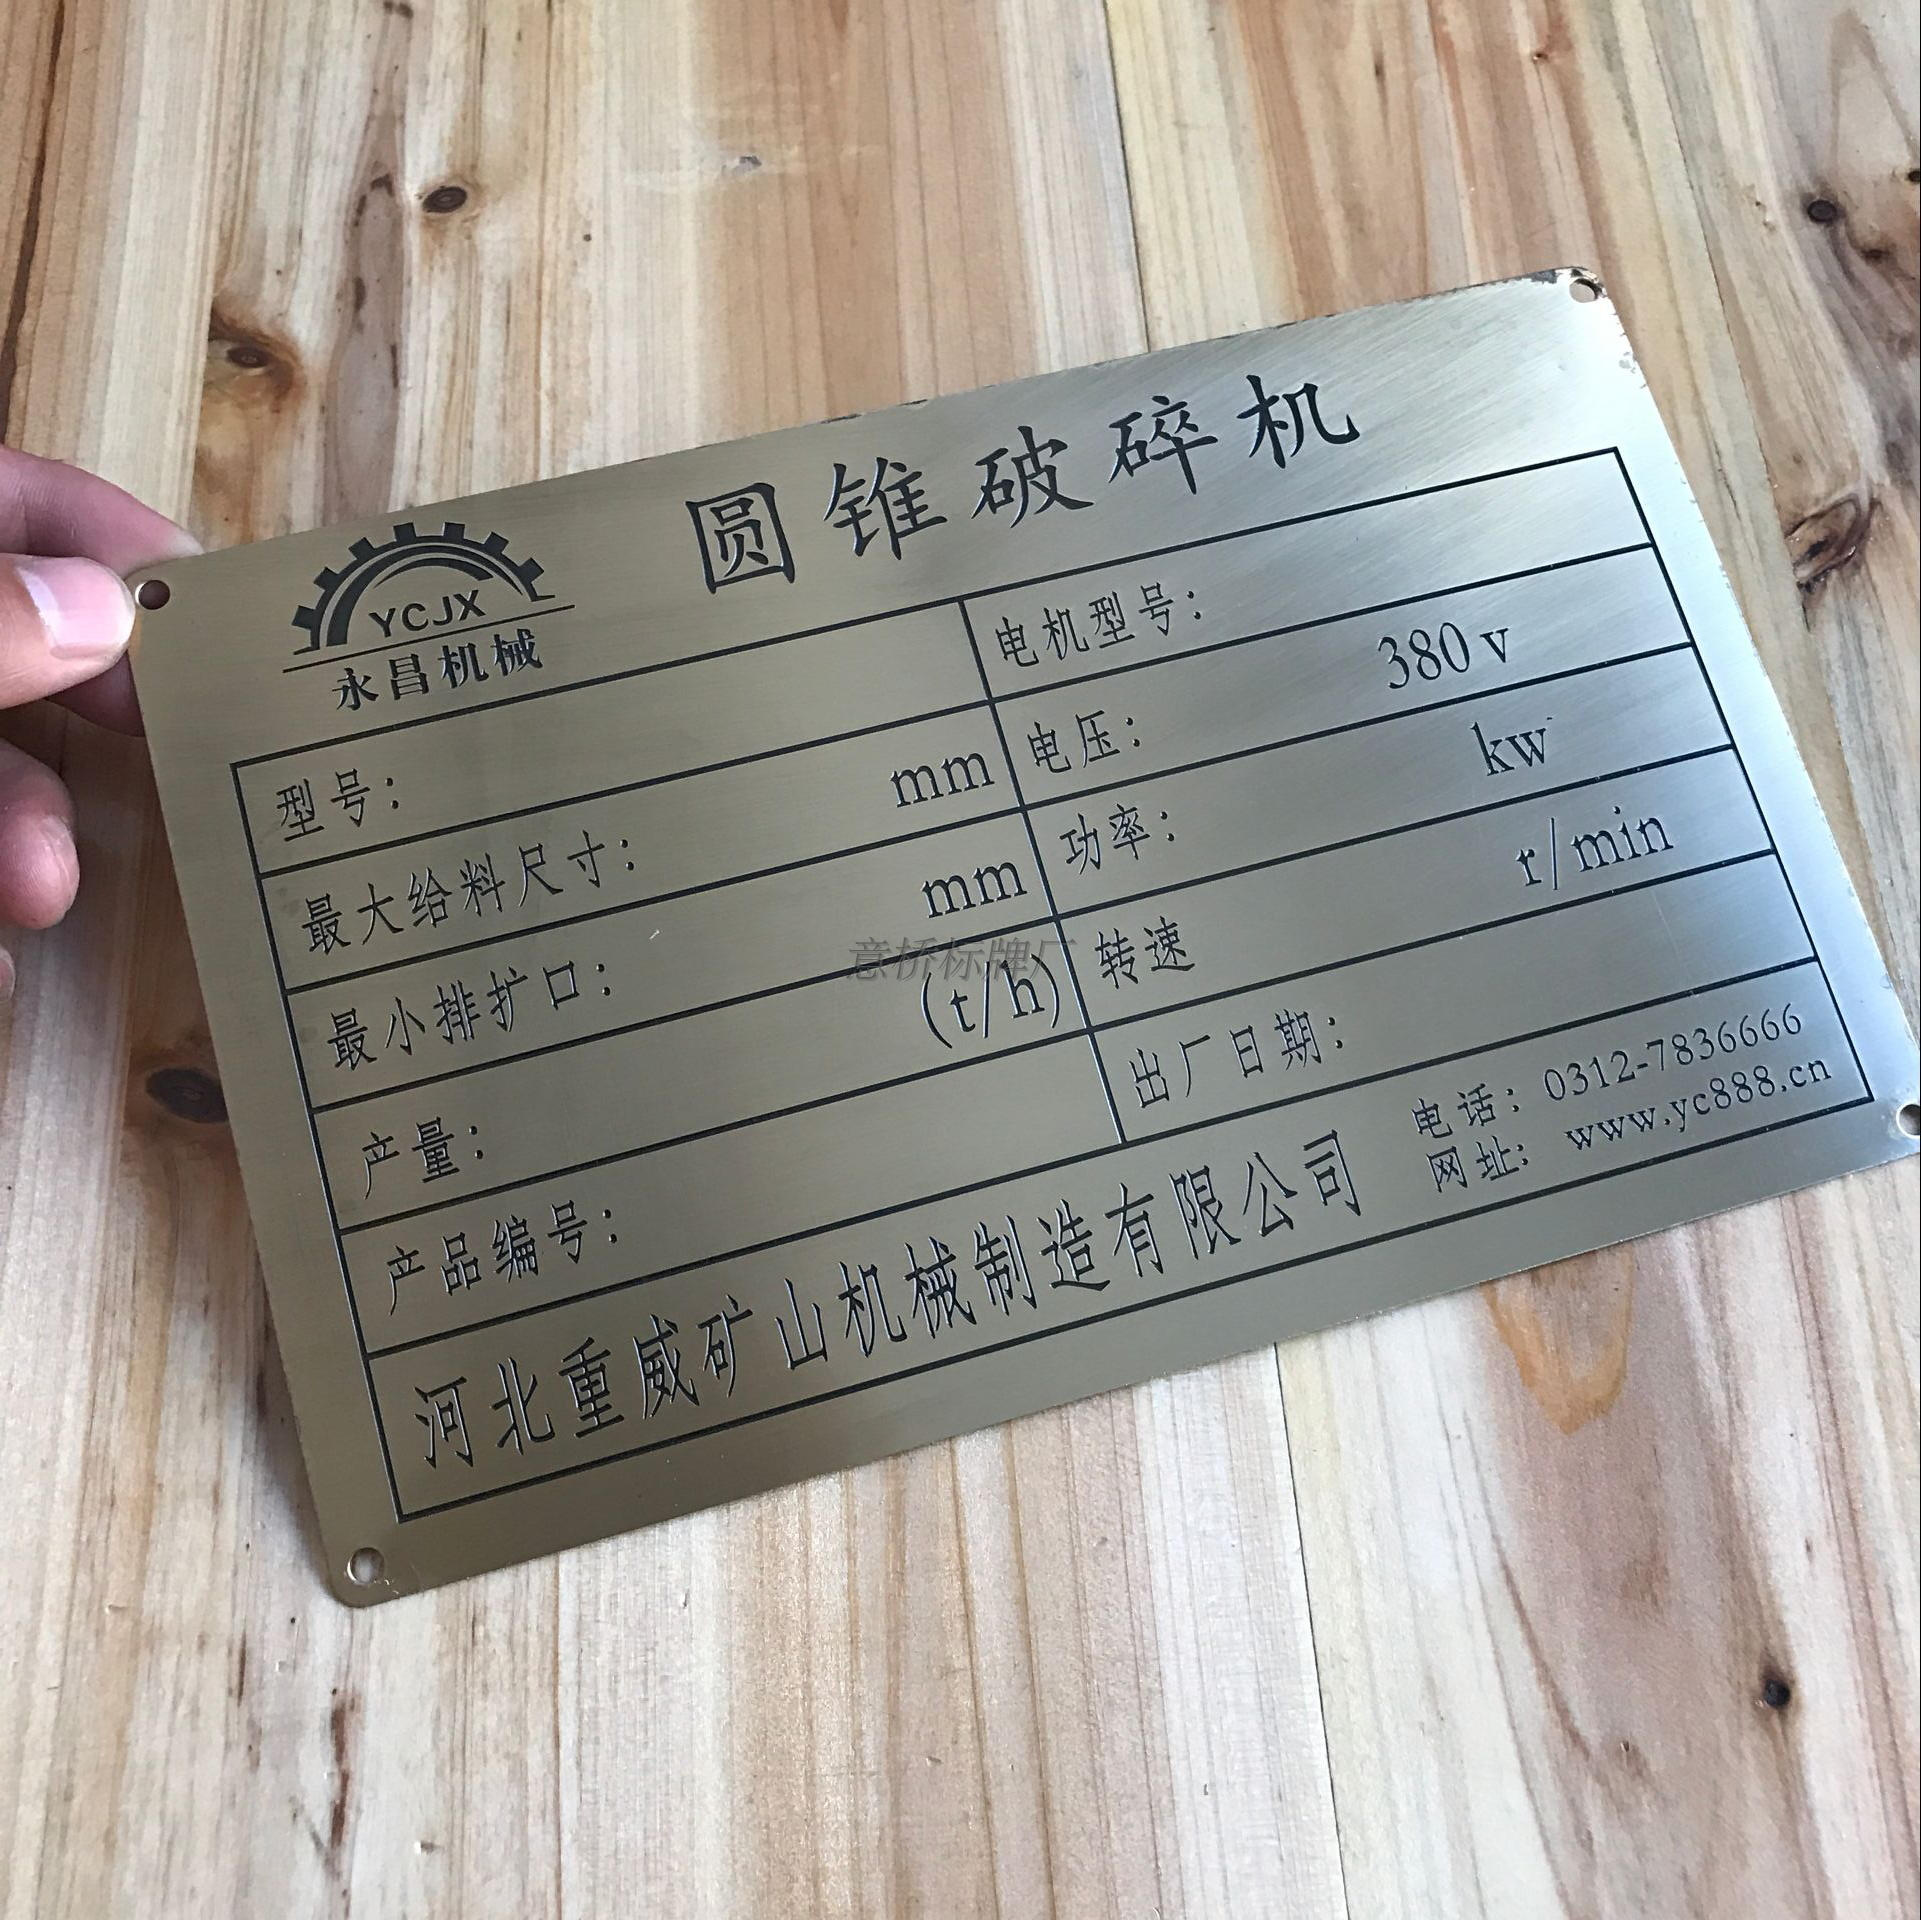 圆锥破碎机
YCJX
永昌机械
型号：
电机型号：
最大给料尺寸： mm
电压： 380v
最小排扩口： mm
功率： kw
产量： (t/h)
转速 r/min
产品编号：
出厂日期：
河北重威矿山机械制造有限公司
电话：0312-7836666
网址：www.yc888.cn
意桥标牌厂